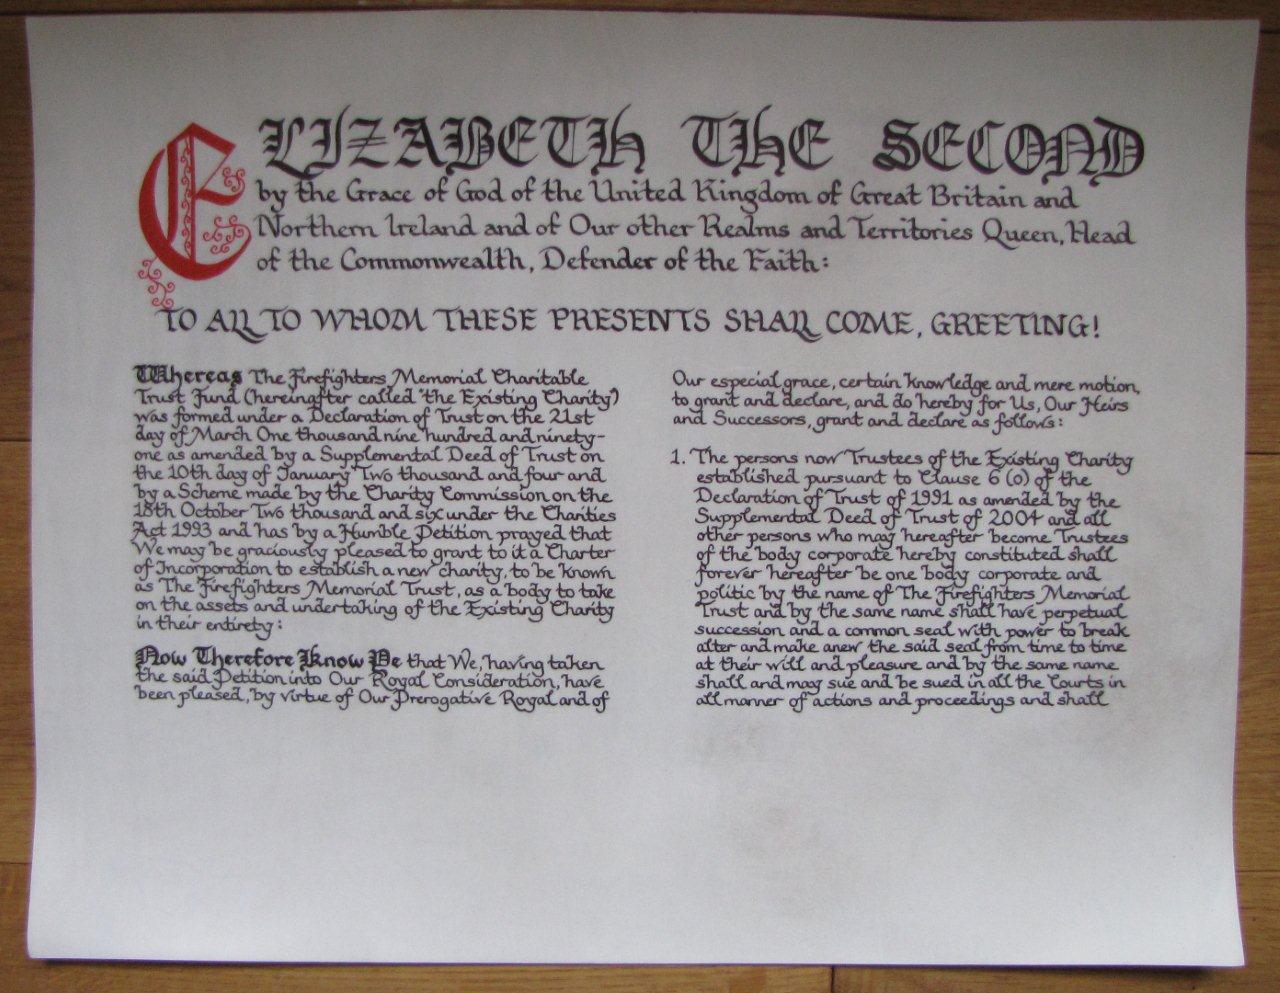 ELIZABETH THE SECOND
by the Grace of God of the United Kingdom of Great Britain and
Northern Ireland and of Our other Realms and Territories Queen, Head
of the Commonwealth, Defender of the Faith:
TO ALL TO WHOM THESE PRESENTS SHALL COME, GREETING!
Whereas The Firefighters Memorial Charitable
Trust Fund (hereinafter called "the Existing Charity")
was formed under a Declaration of Trust on the 21st
day of March One thousand nine hundred and ninety-
one as amended by a Supplemental Deed of Trust on
the 10th day of January Two thousand and four and
by a Scheme made by the Charity Commission on the
18th October Two thousand and six under the Charities
Act 1993 and has by a Humble Petition prayed that
We may be graciously pleased to grant to it a Charter
of Incorporation to establish a new charity, to be known
as The Firefighters Memorial Trust, as a body to take
on the assets and undertaking of the Existing Charity
in their entirety:
Now Therefore Know Ye that We, having taken
the said Petition into Our Royal Consideration, have
been pleased, by virtue of Our Prerogative Royal and of
Our especial grace, certain knowledge and mere motion,
to grant and declare, and do hereby for Us, Our Heirs
and Successors, grant and declare as follows:
1. The persons now Trustees of the Existing Charity
established pursuant to Clause 6 (o) of the
Declaration of Trust of 1991 as amended by the
Supplemental Deed of Trust of 2004 and all
other persons who may hereafter become Trustees
of the body corporate hereby constituted shall
forever hereafter be one body corporate and
politic by the name of The Firefighters Memorial
Trust and by the same name shall have perpetual
succession and a common seal with power to break
alter and make anew the said seal from time to time
at their will and pleasure and by the same name
shall and may sue and be sued in all the Courts in
all manner of actions and proceedings and shall